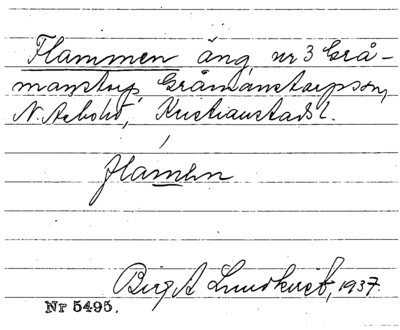 Flammen äng, nr 3 Grå-
manstorp, Gråmanstorps sn,
N. Åsbo hd, Kristianstads l.
flamən
Birg A Lundkvist, 1937.
Nr 5495.